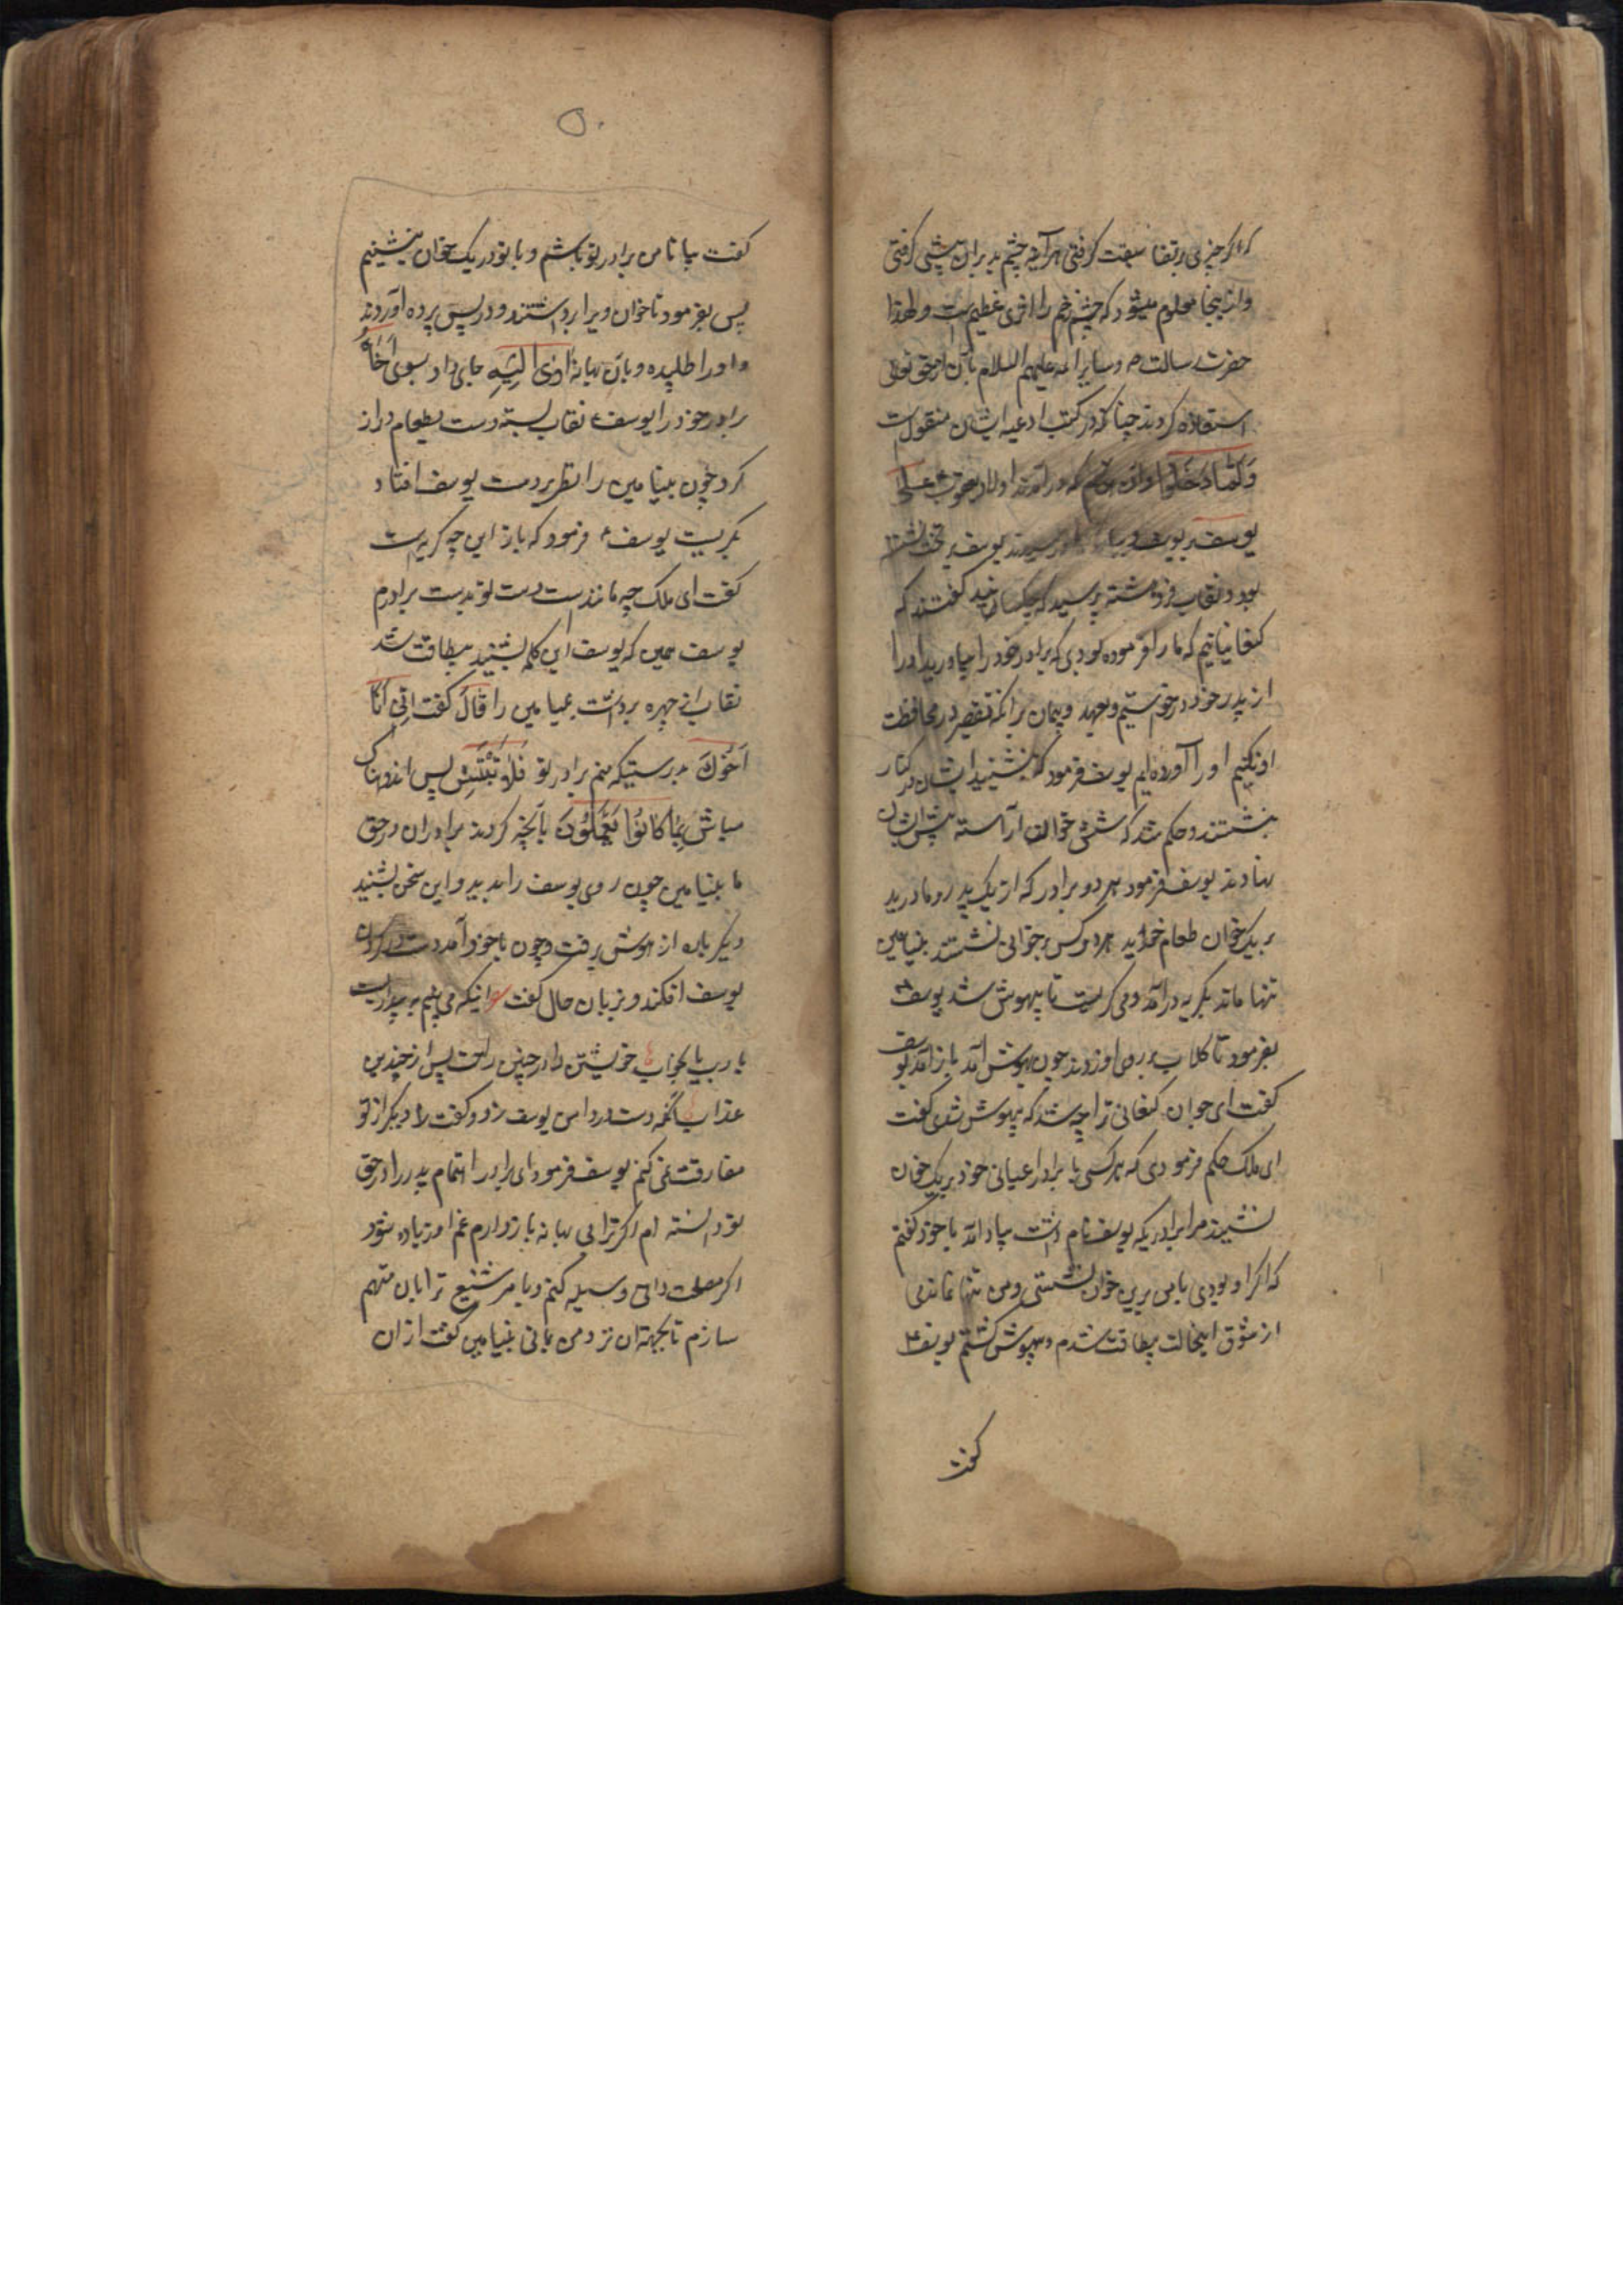 که اگر چیزی بر قضا سبقت گرفتی هر آینه چشم بد بر آن پیشی گرفتی
و از اینجا معلوم میشود که چشم زخم را اثری عظیم است و لهذا
حضرت رسالت ص و سایر ائمه علیهم السلام بآن از حق تعالی
استعاذه کردند چنانکه در کتب ادعیه ایشان منقولست
وَلَمَّا دَخَلُوا و آن هنگام که درآمدند اولاد یعقوب ع علی
یوسف بر یوسف رسیدند یوسف بر تخت نشسته
بود و نقاب فرو هشته پرسید که چه کسانید گفتند که
کنعانیانیم که ما را فرموده بودی که برادر خود را بیاورید او را
از پدر خود درخواستیم و بعهد و پیمان بر آنکه تقصیر در محافظت
او نکنیم او را آورده‌ایم یوسف فرمود که بنشینید ایشان در کنار
بنشستند و حکم شد که شش خوان آراسته پیش ایشان
نهادند یوسف فرمود هر دو برادر که از یک پدر و مادرید
بر یک خوان طعام خورید هر دو کس بر خوانی نشستند بنیامین
تنها ماند بگریه درآمد و می گریست تا بیهوش شد یوسف ع
بفرمود تا گلاب بر روی او زدند چون بهوش آمد باز آمد یوسف
گفت ای جوان کنعانی ترا چه شد که بیهوش شدی گفت
ای ملک حکم فرمودی که هر کسی با برادر اعیانی خود بر یک خوان
نشیند مرا برادریکه یوسف نام داشت بیاد آمد با خود گفتم
که اگر او بودی با من برین خوان نشستی و من تنها نماندمی
از شوق اینحالت بیطاقت شدم و بیهوش گشتم یوسف ع
گفت
۵۰
گفت بیا تا من برادر تو باشم و با تو در یک خوان بنشینیم
پس بفرمود تا خوان ویرا برداشتند و در پس پرده آوردند
و او را طلبیده و بآن بهانه اٰوٰی اِلَیْهِ جای داد بسوی اَخَاهُ
برادر خود را یوسف ع نقاب بسته دست بطعام دراز
کرد چون بنیامین را نظر بر دست یوسف افتاد
بگریست یوسف ع فرمود که باز این چه گریه است
گفت ای ملک چه مانندست دست تو بدست برادرم
یوسف همین که یوسف این کلمه بشنید بیطاقت شد
نقاب از چهره برداشت بنیامین را قَالَ گفت اِنّی اَنَا
اَخُوكَ بدرستیکه منم برادر تو فَلَا تَبْتَئِسْ پس اندوهناک
مباش بِمَا كَانُوا يَعْمَلُونَ بآنچه کردند برادران در حق
ما بنیامین چون روی یوسف را بدید و این سخن بشنید
دیگر باره از هوش برفت و چون باخود آمد دست در گردن
یوسف افکند و بزبان حال گفت اینکه می بینم به بیداریست
یا رب یا بخواب خویشتن را در چنین راحت پس از چندین
عذاب آنگه دست در دامن یوسف زد و گفت لا دیگر از تو
مفارقت نمی کنم یوسف فرمود ای برادر اهتمام پدر را در حق
تو دانسته ام اگر ترا بی بهانه باز دارم غم او زیاده شود
اگر مصلحت دانی وسیله کنم و بامر شنیع ترا بان متهم
سازم تا بجهة آن نزد من بمانی بنیامین گفت از آن